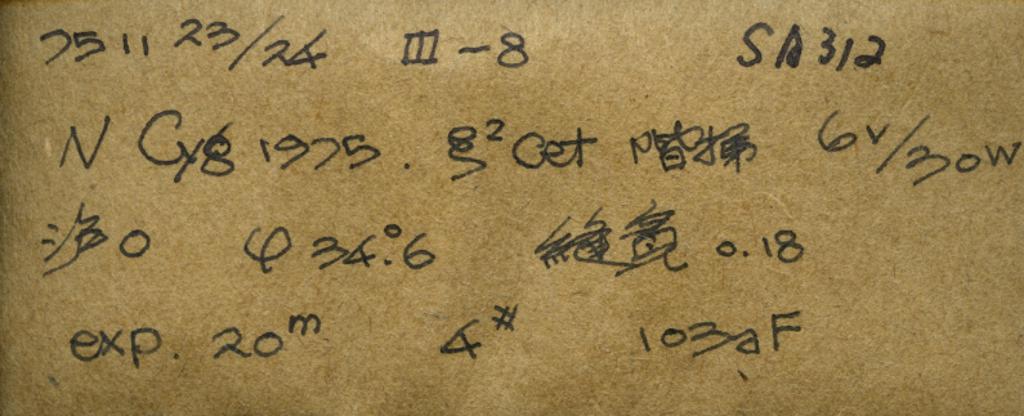 7511 23/24 III-8 SA312
N Cyg 1975. ξ² Cet 階梯 6V/30W
沪0 φ34.°6 縫寬 0.18
exp. 20ᵐ 4# 103aF